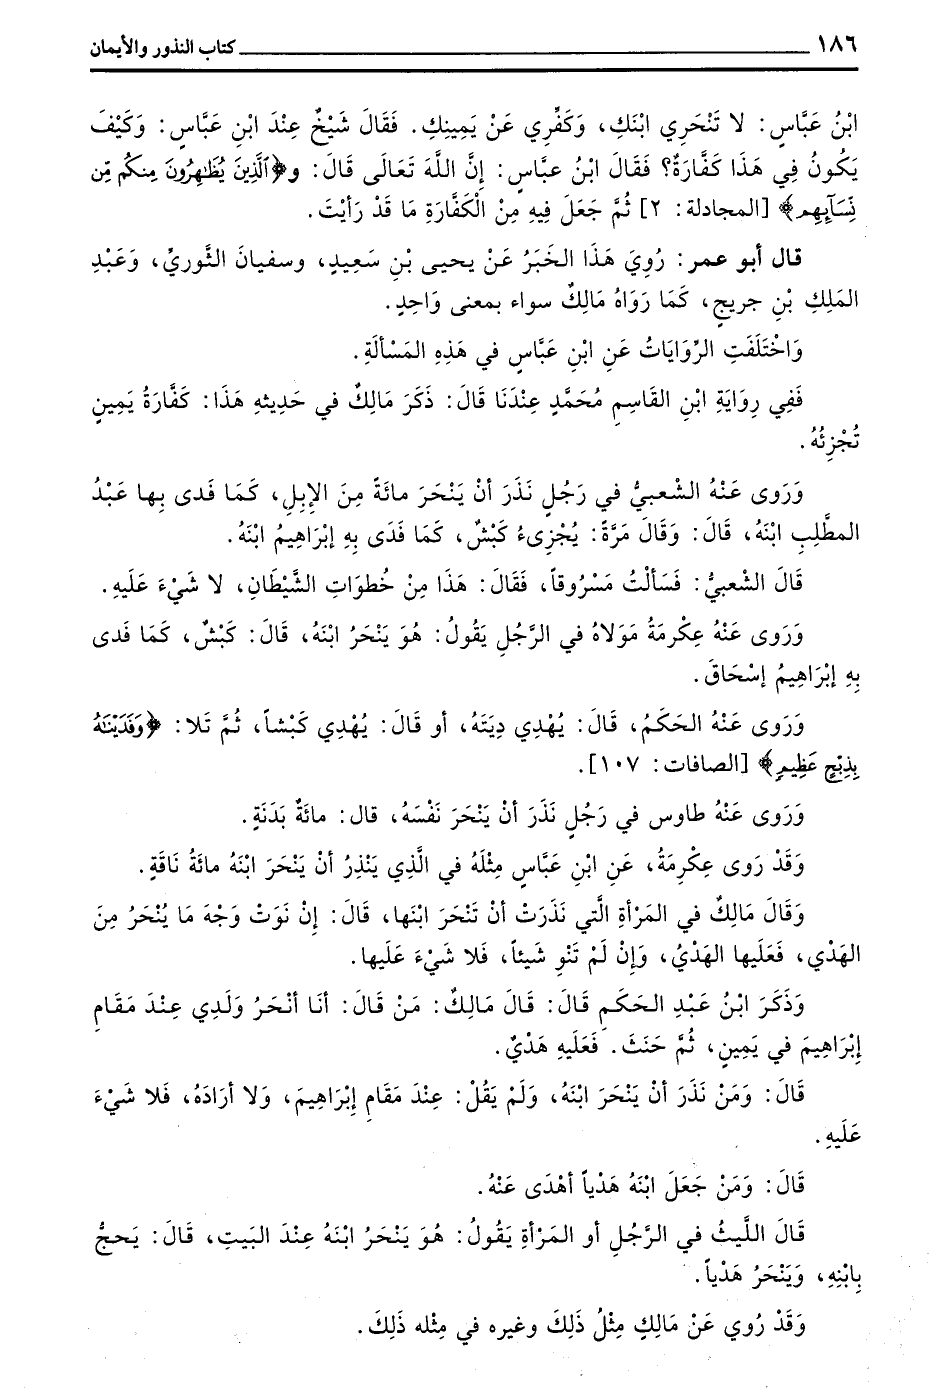 ١٨٦ كتاب النذور والأيمان
ابْنُ عَبَّاسٍ: لا تَنْحَرِي ابْنَكِ، وَكَفِّرِي عَنْ يَمِينِكِ. فَقَالَ شَيْخٌ عِنْدَ ابْنِ عَبَّاسٍ: وَكَيْفَ
يَكُونُ فِي هَذَا كَفَّارَةٌ؟ فَقَالَ ابْنُ عبَّاسٍ: إنَّ اللَّهَ تَعَالَى قَالَ: و﴿ٱلَّذِينَ يُظَٰهِرُونَ مِنكُم مِّن
نِّسَآئِهِم﴾ [المجادلة: ٢] ثُمَّ جَعَلَ فِيهِ مِنْ الْكَفَّارَةِ مَا قَدْ رَأيْتَ.
قال أبو عمر: رُوِيَ هَذَا الخَبَرُ عَنْ يحيى بْنِ سَعِيدٍ، وسفيانَ الثَّوريِّ، وَعَبْدِ
المَلِكِ بْنِ جريجٍ، كَمَا رَوَاهُ مَالِكٌ سواء بمعنى وَاحِدٍ.
وَاخْتَلَفَتِ الرِّوَايَاتُ عَنِ ابْنِ عَبَّاسٍ في هَذِهِ المَسْألَةِ.
فَفِي رِوَايَةِ ابْنِ القَاسِمِ مُحَمَّدٍ عِنْدَنَا قَالَ: ذَكَرَ مَالِكٌ في حَدِيثِهِ هَذَا: كَفَّارَةُ يَمِينٍ
تُجْزِئُهُ.
وَرَوى عَنْهُ الشَّعبيُّ في رَجُلٍ نَذَرَ أنْ يَنْحَرَ مائَةً مِنَ الإبِلِ، كَمَا فَدى بِها عَبْدُ
المطَّلِبِ ابْنَهُ، قَالَ: وَقَالَ مَرَّةً: يُجْزِىءُ كَبْشٌ، كَمَا فَدَى بِهِ إبْرَاهِيمُ ابْنَهُ.
قَالَ الشَّعبيُّ: فَسَألْتُ مَسْرُوقاً، فَقَالَ: هَذَا مِنْ خُطوَاتِ الشَّيْطَانِ، لا شَيْءَ عَلَيهِ.
وَرَوى عَنْهُ عِكْرِمَةُ مَوَلاهُ في الرَّجُلِ يَقُولُ: هُوَ يَنْحَرُ ابْنَهُ، قَالَ: كَبْشٌ، كَمَا فَدى
بِهِ إبْرَاهِيمُ إسْحَاقَ.
وَرَوى عَنْهُ الحَكَمُ، قَالَ: يُهْدِي دِيَتَهُ، أو قَالَ: يُهْدِي كَبْشاً، ثُمَّ تَلا: ﴿وَفَدَيْنَٰهُ
بِذِبْحٍ عَظِيمٍ﴾ [الصافات: ١٠٧].
وَرَوى عَنْهُ طاوس في رَجُلٍ نَذَرَ أنْ يَنْحَرَ نَفْسَهُ، قال: مائَةٌ بَدَنَةٍ.
وَقَدْ رَوى عِكْرِمَةُ، عَنِ ابْنِ عَبَّاسٍ مِثْلَهُ في الَّذِي يَنْذِرُ أنْ يَنْحَرَ ابْنَهُ مائَةُ نَاقَةٍ.
وَقَالَ مَالِكٌ في المَرْأةِ الَّتي نَذَرَتْ أنْ تَنْحَرَ ابْنَها، قَالَ: إنْ نَوَتْ وَجْهَ مَا يُنْحَرُ مِنَ
الهَدْي، فَعَلَيها الهَدْيُ، وَإنْ لَمْ تَنْوِ شَيئاً، فَلا شَيْءَ عَلَيها.
وَذَكَرَ ابْنُ عَبْدِ الحَكَمِ قَالَ: قَالَ مَالِكٌ: مَنْ قَالَ: أنَا أنْحَرُ وَلَدِي عِنْدَ مَقَامِ
إبْرَاهِيمَ في يَمِينٍ، ثُمَّ حَنَثَ. فَعَلَيهِ هَدْيٌ.
قَالَ: وَمَنْ نَذَرَ أنْ يَنْحَرَ ابْنَهُ، وَلَمْ يَقُلْ: عِنْدَ مَقَامِ إبْرَاهِيمَ، وَلا أرَادَهُ، فَلا شَيْءَ
عَلَيهِ.
قَالَ: وَمَنْ جَعَلَ ابْنَهُ هَدْياً أهْدَى عَنْهُ.
قَالَ اللَّيثُ في الرَّجُلِ أو المَرْأةِ يَقُولُ: هُوَ يَنْحَرُ ابْنَهُ عِنْدَ البَيتِ، قَالَ: يَحجُّ
بِابْنِهِ، وَيَنْحَرُ هَدْياً.
وَقَدْ رُوي عَنْ مَالِكٍ مِثْلُ ذَلِكَ وغيره في مِثْله ذَلِكَ.